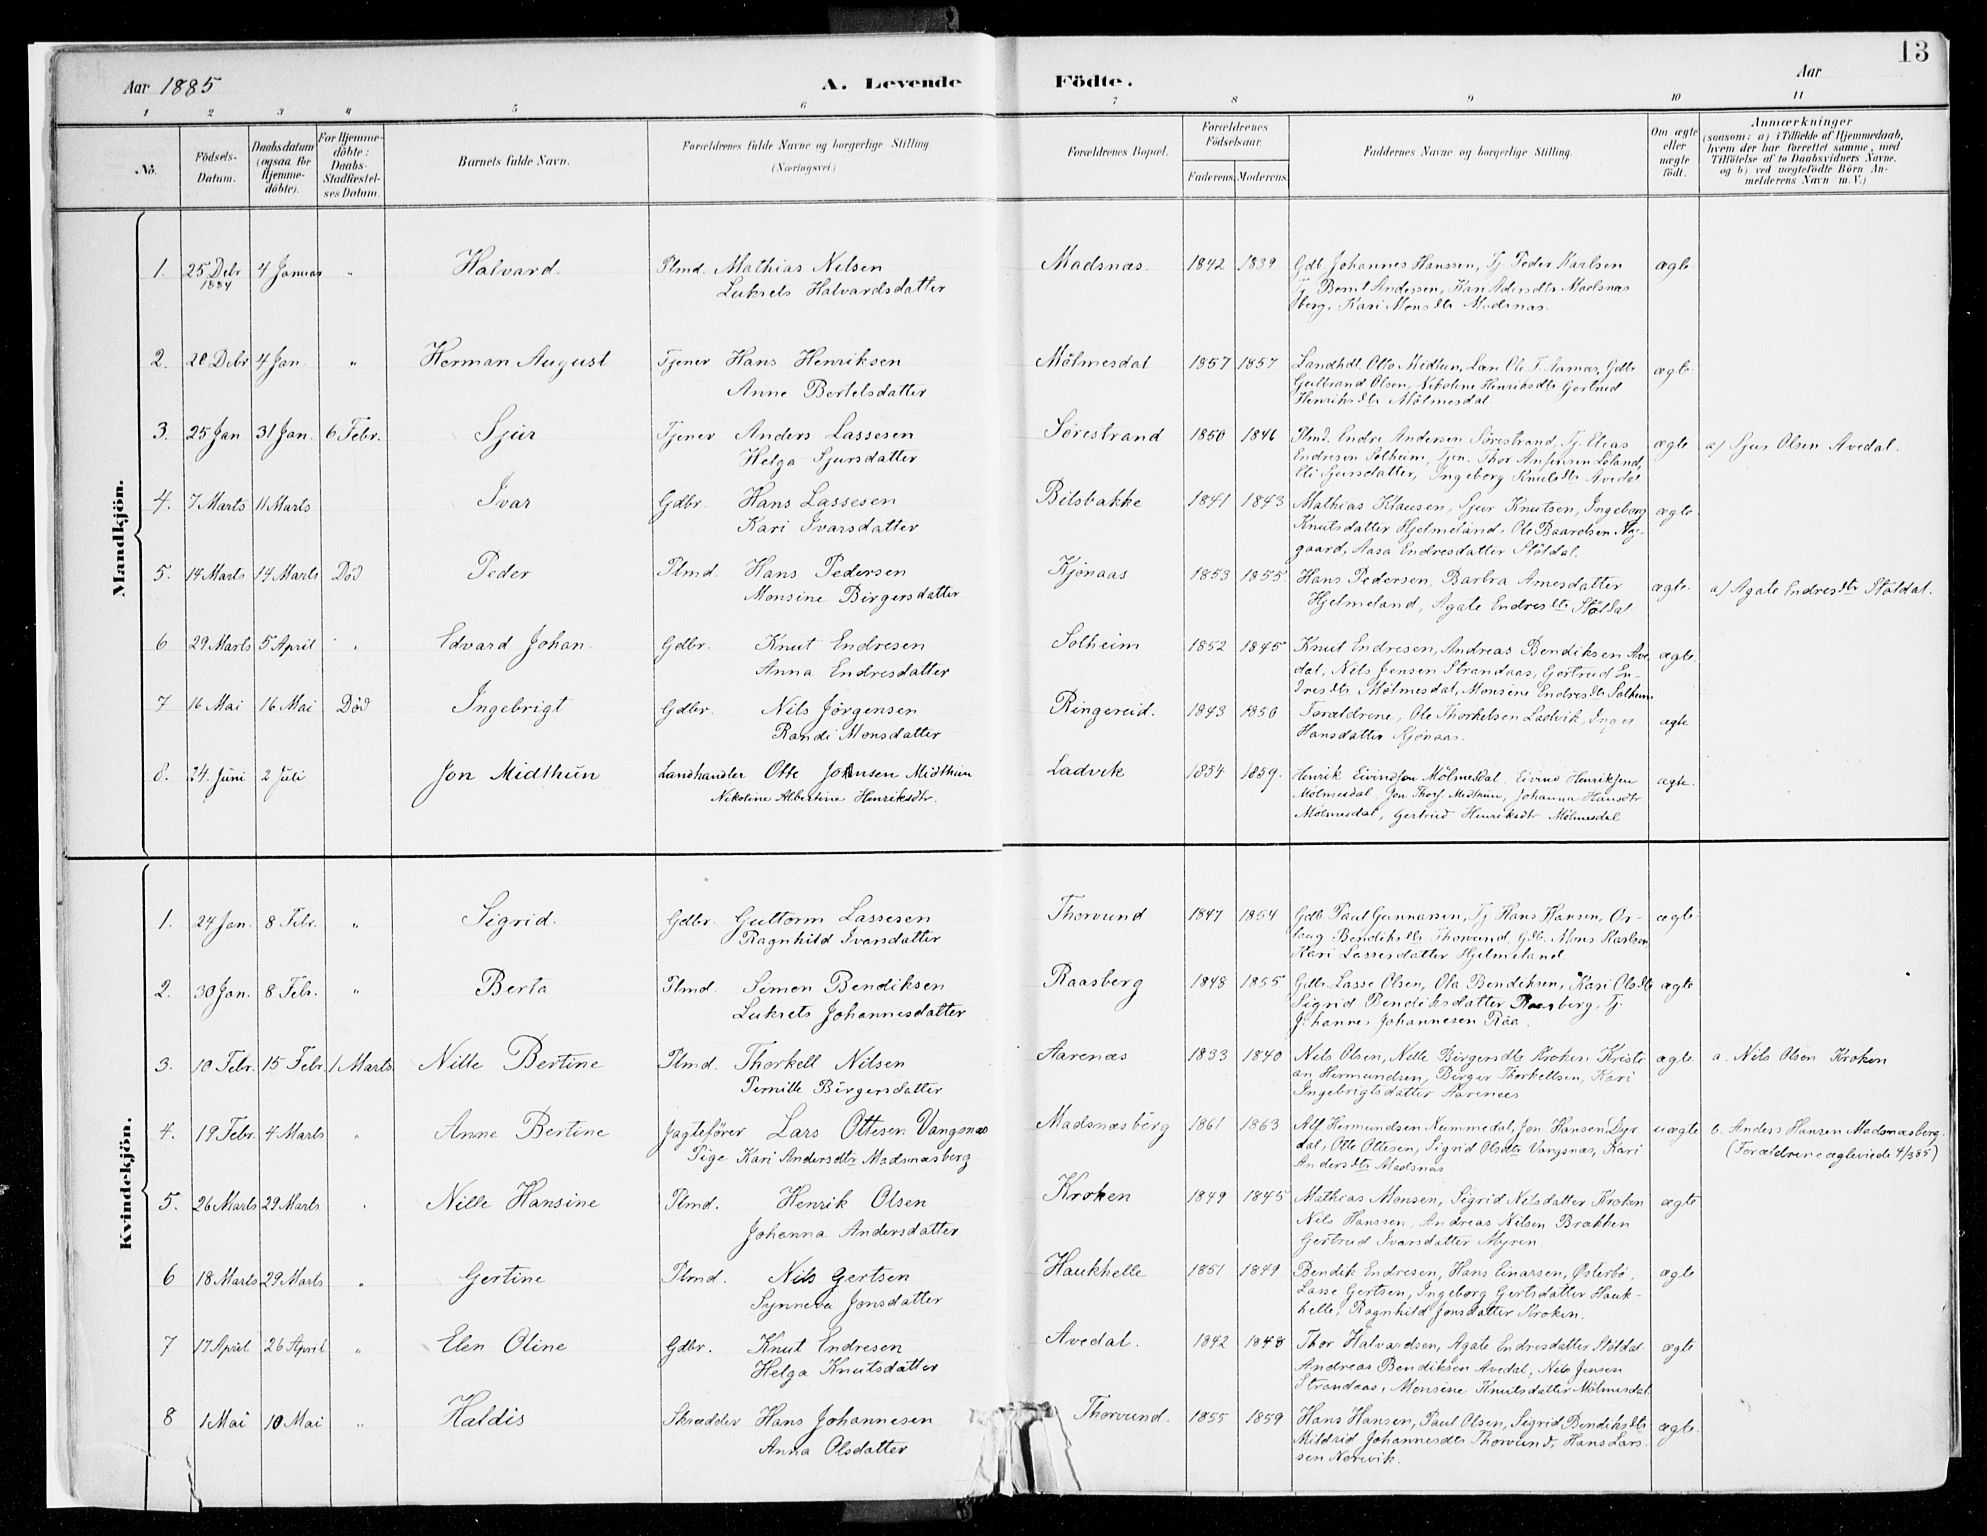 13
Aar 1885 A. Levende Födte. Aar
1 2 3 4 5 6 7 8 9 10 11
No.
Födsels-Datum.
Daabsdatum (ogsaa for Hjemme-döbte).
For Hjemme-döbte: Daabs-Stadfæstel-ses Datum.
Barnets fulde Navn.
Forældrenes fulde Navne og borgerlige Stilling. (Næringsvei.)
Forældrenes Bopæl.
Forældrenes Födselsaar.
Faderens. Moderens.
Faddernes Navne og borgerlige Stilling.
Om ægte eller uægte födt.
Anmærkninger
(saasom: a) i Tilfælde af Hjemmedaab,
hvem der har forrettet samme, med
Tilföielse af to Daabsvidners Navne.
og b) ved uægtefödte Börn An-
melderens Navn m. V.)
Mandkjön.
1. 25 Debr 1884 4 Januar " Halvard. Plmd. Mathias Nilsen Madsnæs. 1842 1839 Gdb. Johannes Hanssen, Tj. Peder Karlsen ægte
Luksets Halvardsdatter Tj. Bernt Andersen, Kari Madsnæs
berg, Kari Monsdtr Madsnæs.
2. 20 Debr 4 Jan. " Herman August Tjener Hans Henriksen Mölmesdal 1857 1857 Landhdl. Otto Midtun, Ole T. Gdbr ægte.
Anne Bertelsdatter Gulbrand Olsen, Nikoline Henriksdtr Gertrud
Henriksdtr Mölmesdal.
3. 25 Jan 31 Jan. 6 Febr. Sjur Tjener Anders Lassesen Sörestrand 1850 1846 Plmd. Endre Andersen Sörestrand, Tj. Elias ægte a) Sjur Olsen Avedal.
Helga Sjursdatter Endresen Solheim, Thor Ansensen Loland,
Eli Sjursdatter, Ingeborg Knutsdtr Avedal
4. 7 Marts 11 Marts Ivar Gdbr. Hans Lassesen Bilsbakke 1841 1843 Mathias Klausen, Sjur Knutsen, Ingeborg ægte.
Kari Ivarsdatter Knutsdatter Hjelmeland, Ole Baardsen Ny-
gaard, Aasa Endresdatter Stöldal.
5. 14 Marts 14 Marts Död Peder Plmd. Hans Pedersen Kjönaas 1853 1855. Hans Pedersen, Barbra Arnesdatter ægte. a) Agate Endresdtr Stöldal.
Monsine Birgersdatter Hjelmeland, Agate Endresdtr Stöldal
6 29 Marts 5 April " Edvard Johan. Gdbr. Knut Endresen Solheim 1852 1845 Knut Endresen, Andreas Bendiksen Ave ægte.
Anna Endresdatter dal, Nils Jensen Strandaas, Gjertrud En-
dresdtr Mölmesdal, Monsine Endresdtr Solheim
7 16 Mai 16 Mai Död Ingebrigt Gdbr. Nils Jörgensen Ringereid. 1843 1850 Forældrene, Ole Thorkelsen Ladvik, Inger ægte
Randi Monsdatter Hansdatter Kjönaas.
8. 24. Juni 2 Juli Jon Midthun Landhandler Otto Johnsen Midthun Ladvik 1854 1859. Henrik Eivindsen Mölmesdal, Eivind Henriksen ægte.
Nikoline Albertine Henriksdtr. Mölmesdal, Jon Midthun, Johanna Hansdtr
Mölmesdal, Gertrud Henriksdtr Mölmesdal
Kvindekjön.
1. 24 Jan. 8 Febr. " Sigrid. Gdbr. Guttorm Lassesen Thorvund 1847 1854 Gdb. Paul Gunnarsen, Tj Hans Hansen, Or- ægte
Ragnhild Ivarsdatter laug Bendiksdtr Thorvund, Gdb. Mons Karlsen
Kari Lassesdatter Hjelmeland
2. 30 Jan. 8 Febr. " Berta Plmd. Simon Bendiksen Raasberg 1848 1855 Gdbr. Lasse Olsen, Ola Bendiksen, Kari Olsdtr ægte
Luksets Johannesdatter Sigrid Bendiksdatter Raasberg, Tj.
Johannes Johannesen Råa
3. 10 Febr. 15 Febr. 1 Marts Nille Bertine Plmd. Thorkell Nilsen Aarenæs 1833 1840 Nils Olsen, Nille Birgersdtr Kroken, Kristi ægte a. Nils Olsen Kroken
Pernille Birgersdatter an Hermundsen, Birger Thorkellsen, Kari
Ingebrigtsdatter Aarenæs
4. 19 Febr. 4 Marts " Anne Bertine Jagtefører Lars Ottesen Vangsnæs Madsnæsbérg 1861 1863 Alf Hermundsen Nummedal, Jon Hansen Dyr uægte b. Anders Hansen Madsnæsberg.
Pige Kari Andersdtr Madsnæsberg dal, Otte Ottesen, Sigrid Olsdtr Vangsnæs, Kari (Forældrene ægteviede 4/3 85)
Andersdtr Madsnæs
5. 26 Marts 29 Marts " Nille Hansine Plmd. Henrik Olsen Kroken 1849 1845 Mathias Monsen, Sigrid Nilsdatter Kroken ægte
Johanna Andersdatter Nils Hanssen, Andreas Nilsen Brækken
Gertrud Ivarsdatter Myren.
6 18 Marts 29 Marts " Gertine Plmd. Nils Gertsen Haukhelle 1851 1849 Bendik Endresen, Hans Einarsen, Østerbö, ægte
Synneva Jonsdatter Lasse Gertsen, Ingeborg Gertsdatter Hauk-
helle, Ragnhild Jonsdatter Kroken.
7 17 April 26 April " Elen Oline Gdbr. Knut Endresen Avedal. 1842 1848 Thor Halvardsen, Agate Endresdatter Stöldal ægte
Helga Knutsdatter Andreas Bendiksen Avedal, Nils Jensen
Strandaas, Monsine Knutsdatter Mölmesdal
8 1 Mai 10 Mai " Haldis Skrædder Hans Johannesen Thorvund. 1855 1859 Hans Hansen, Paul Olsen, Sigrid Bendiksdtr ægte.
Anna Olsdatter Mildrid Johannesdtr Thorvund, Hans Lars-
sen Norevik.